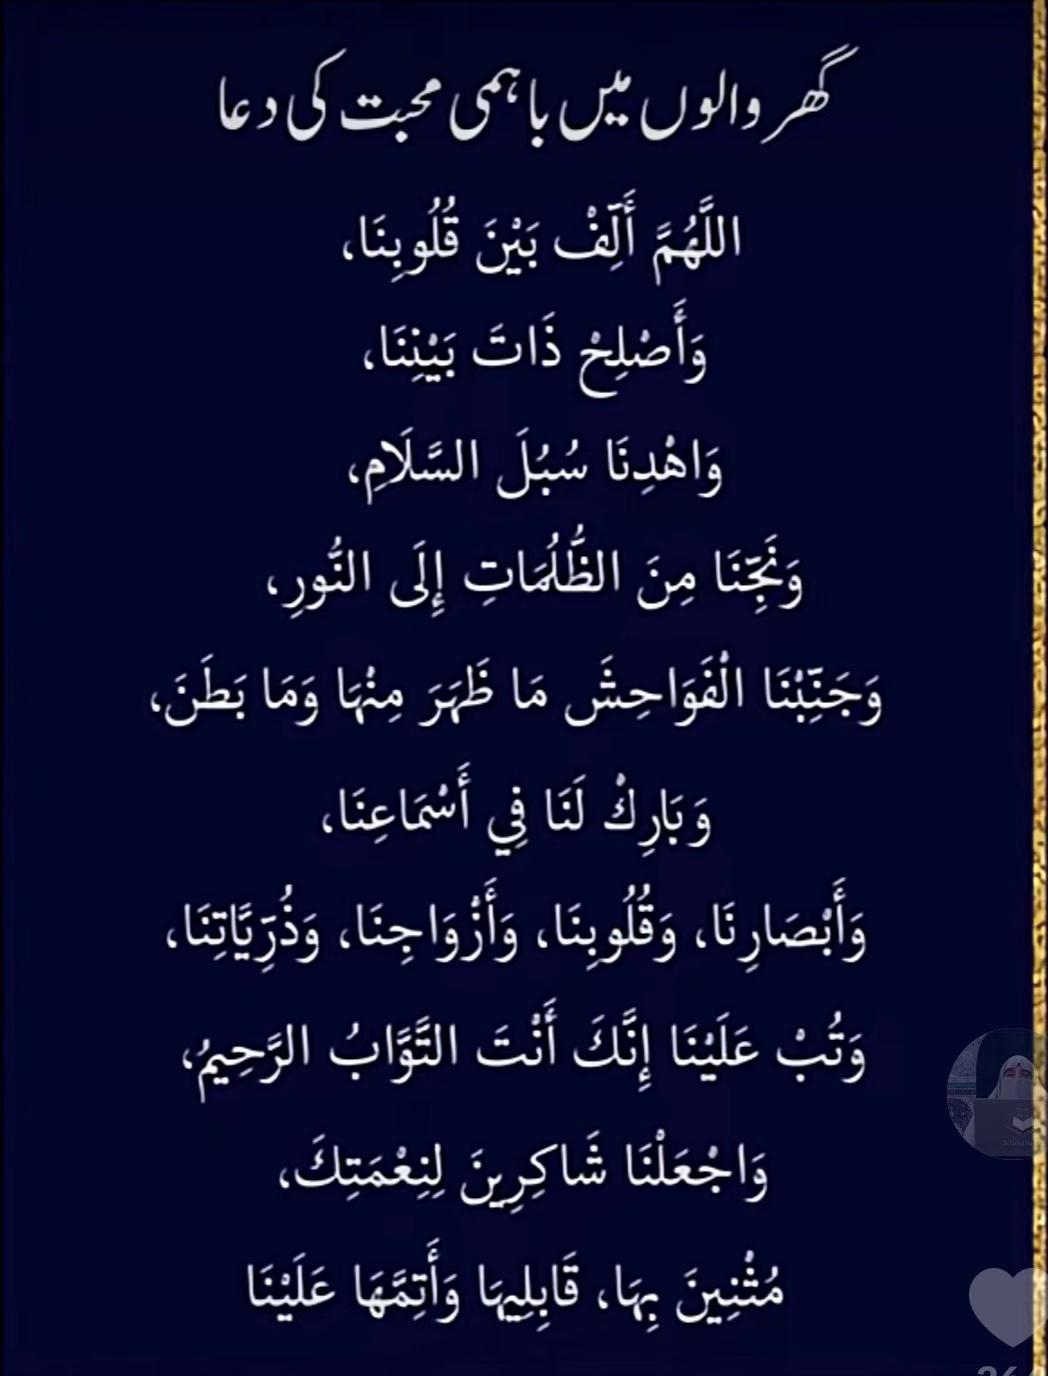 گھر والوں میں باہمی محبت کی دعا
اللَّهُمَّ أَلِّفْ بَيْنَ قُلُوبِنَا،
وَأَصْلِحْ ذَاتَ بَيْنِنَا،
وَاهْدِنَا سُبُلَ السَّلَامِ،
وَنَجِّنَا مِنَ الظُّلُمَاتِ إِلَى النُّورِ،
وَجَنِّبْنَا الْفَوَاحِشَ مَا ظَهَرَ مِنْهَا وَمَا بَطَنَ،
وَبَارِكْ لَنَا فِي أَسْمَاعِنَا،
وَأَبْصَارِنَا، وَقُلُوبِنَا، وَأَزْوَاجِنَا، وَذُرِّيَّاتِنَا،
وَتُبْ عَلَيْنَا إِنَّكَ أَنْتَ التَّوَّابُ الرَّحِيمُ،
وَاجْعَلْنَا شَاكِرِينَ لِنِعْمَتِكَ،
مُثْنِينَ بِهَا، قَابِلِيهَا وَأَتِمَّهَا عَلَيْنَا